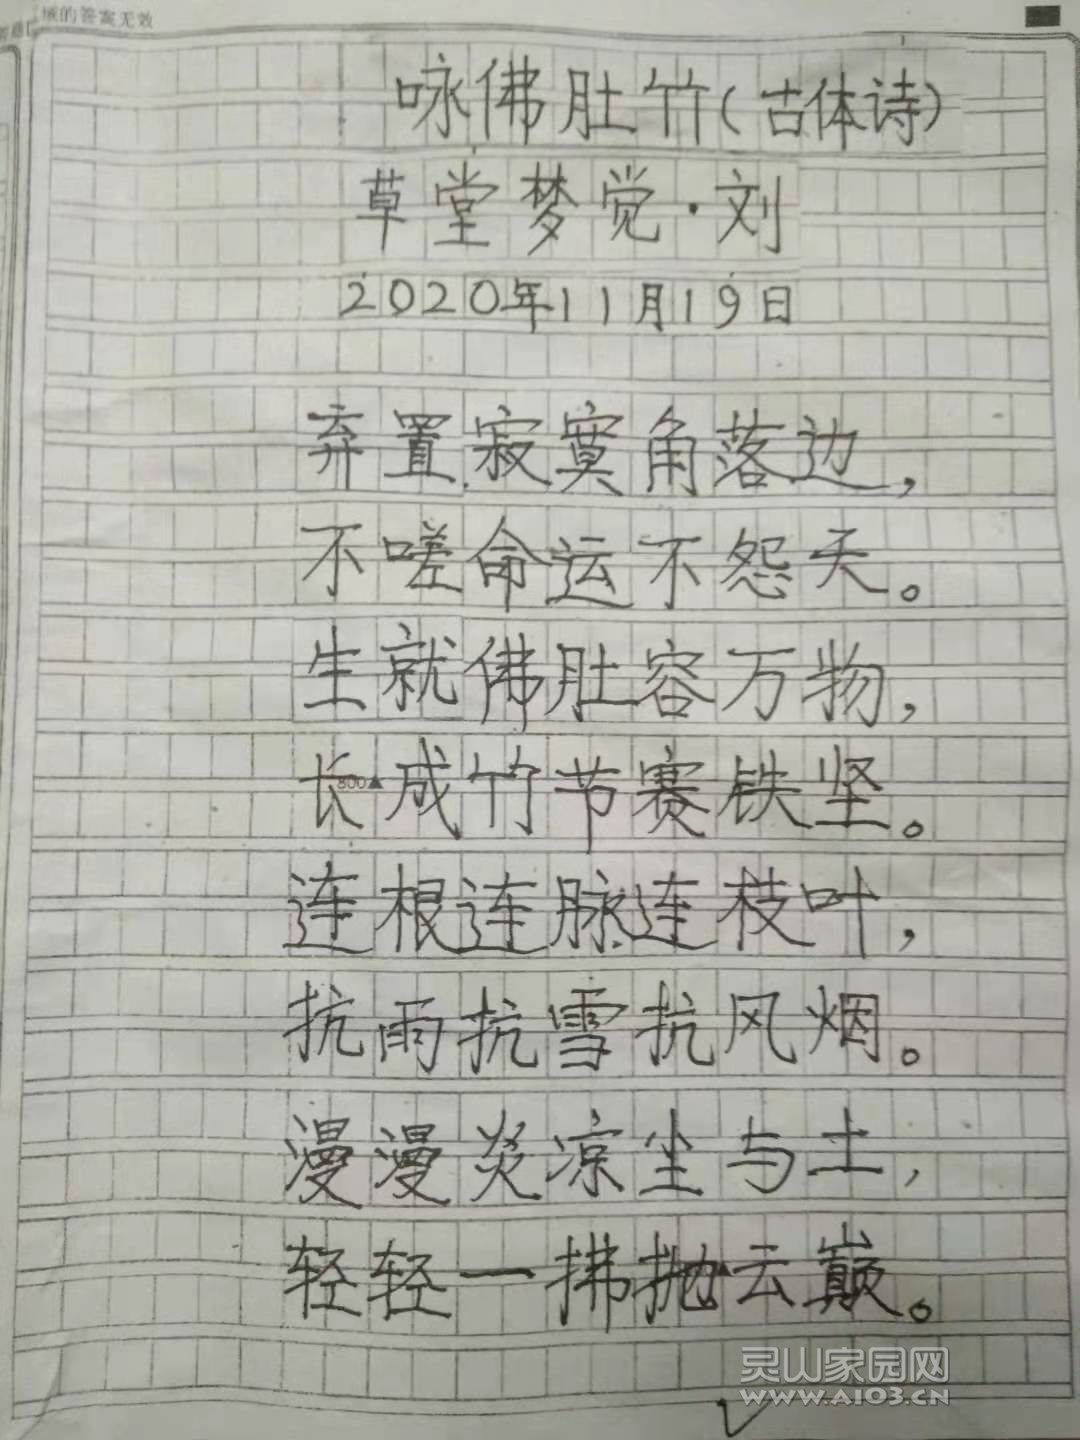 域的答案无效
咏佛肚竹(古体诗)
草堂梦觉·刘
2020年11月19日
弃置寂寞角落边，
不嗟命运不怨天。
生就佛肚容万物，
长成竹节赛铁坚。
800▲
连根连脉连枝叶，
抗雨抗雪抗风烟。
漫漫炎凉尘与土，
轻轻一拂抛云巅。
灵山家园网
WWW.A103.CN